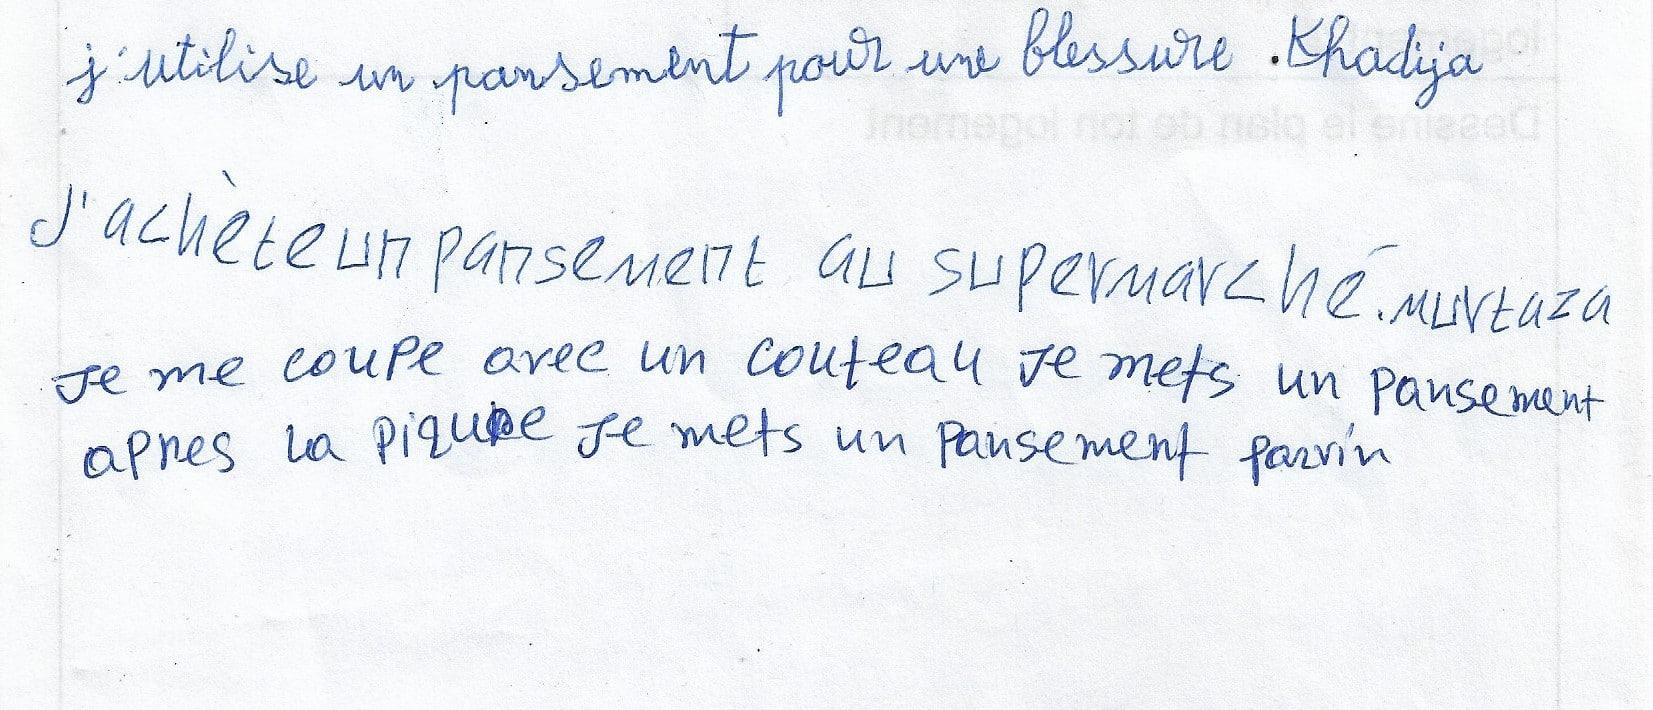 j'utilise un pansement pour une blessure . Khadija
Dessine le plan de ton logement
J'achète un pansement au supermarché. Murtaza
Je me coupe avec un couteau Je mets un pansement
apres la piqure Je mets un pansement parvin